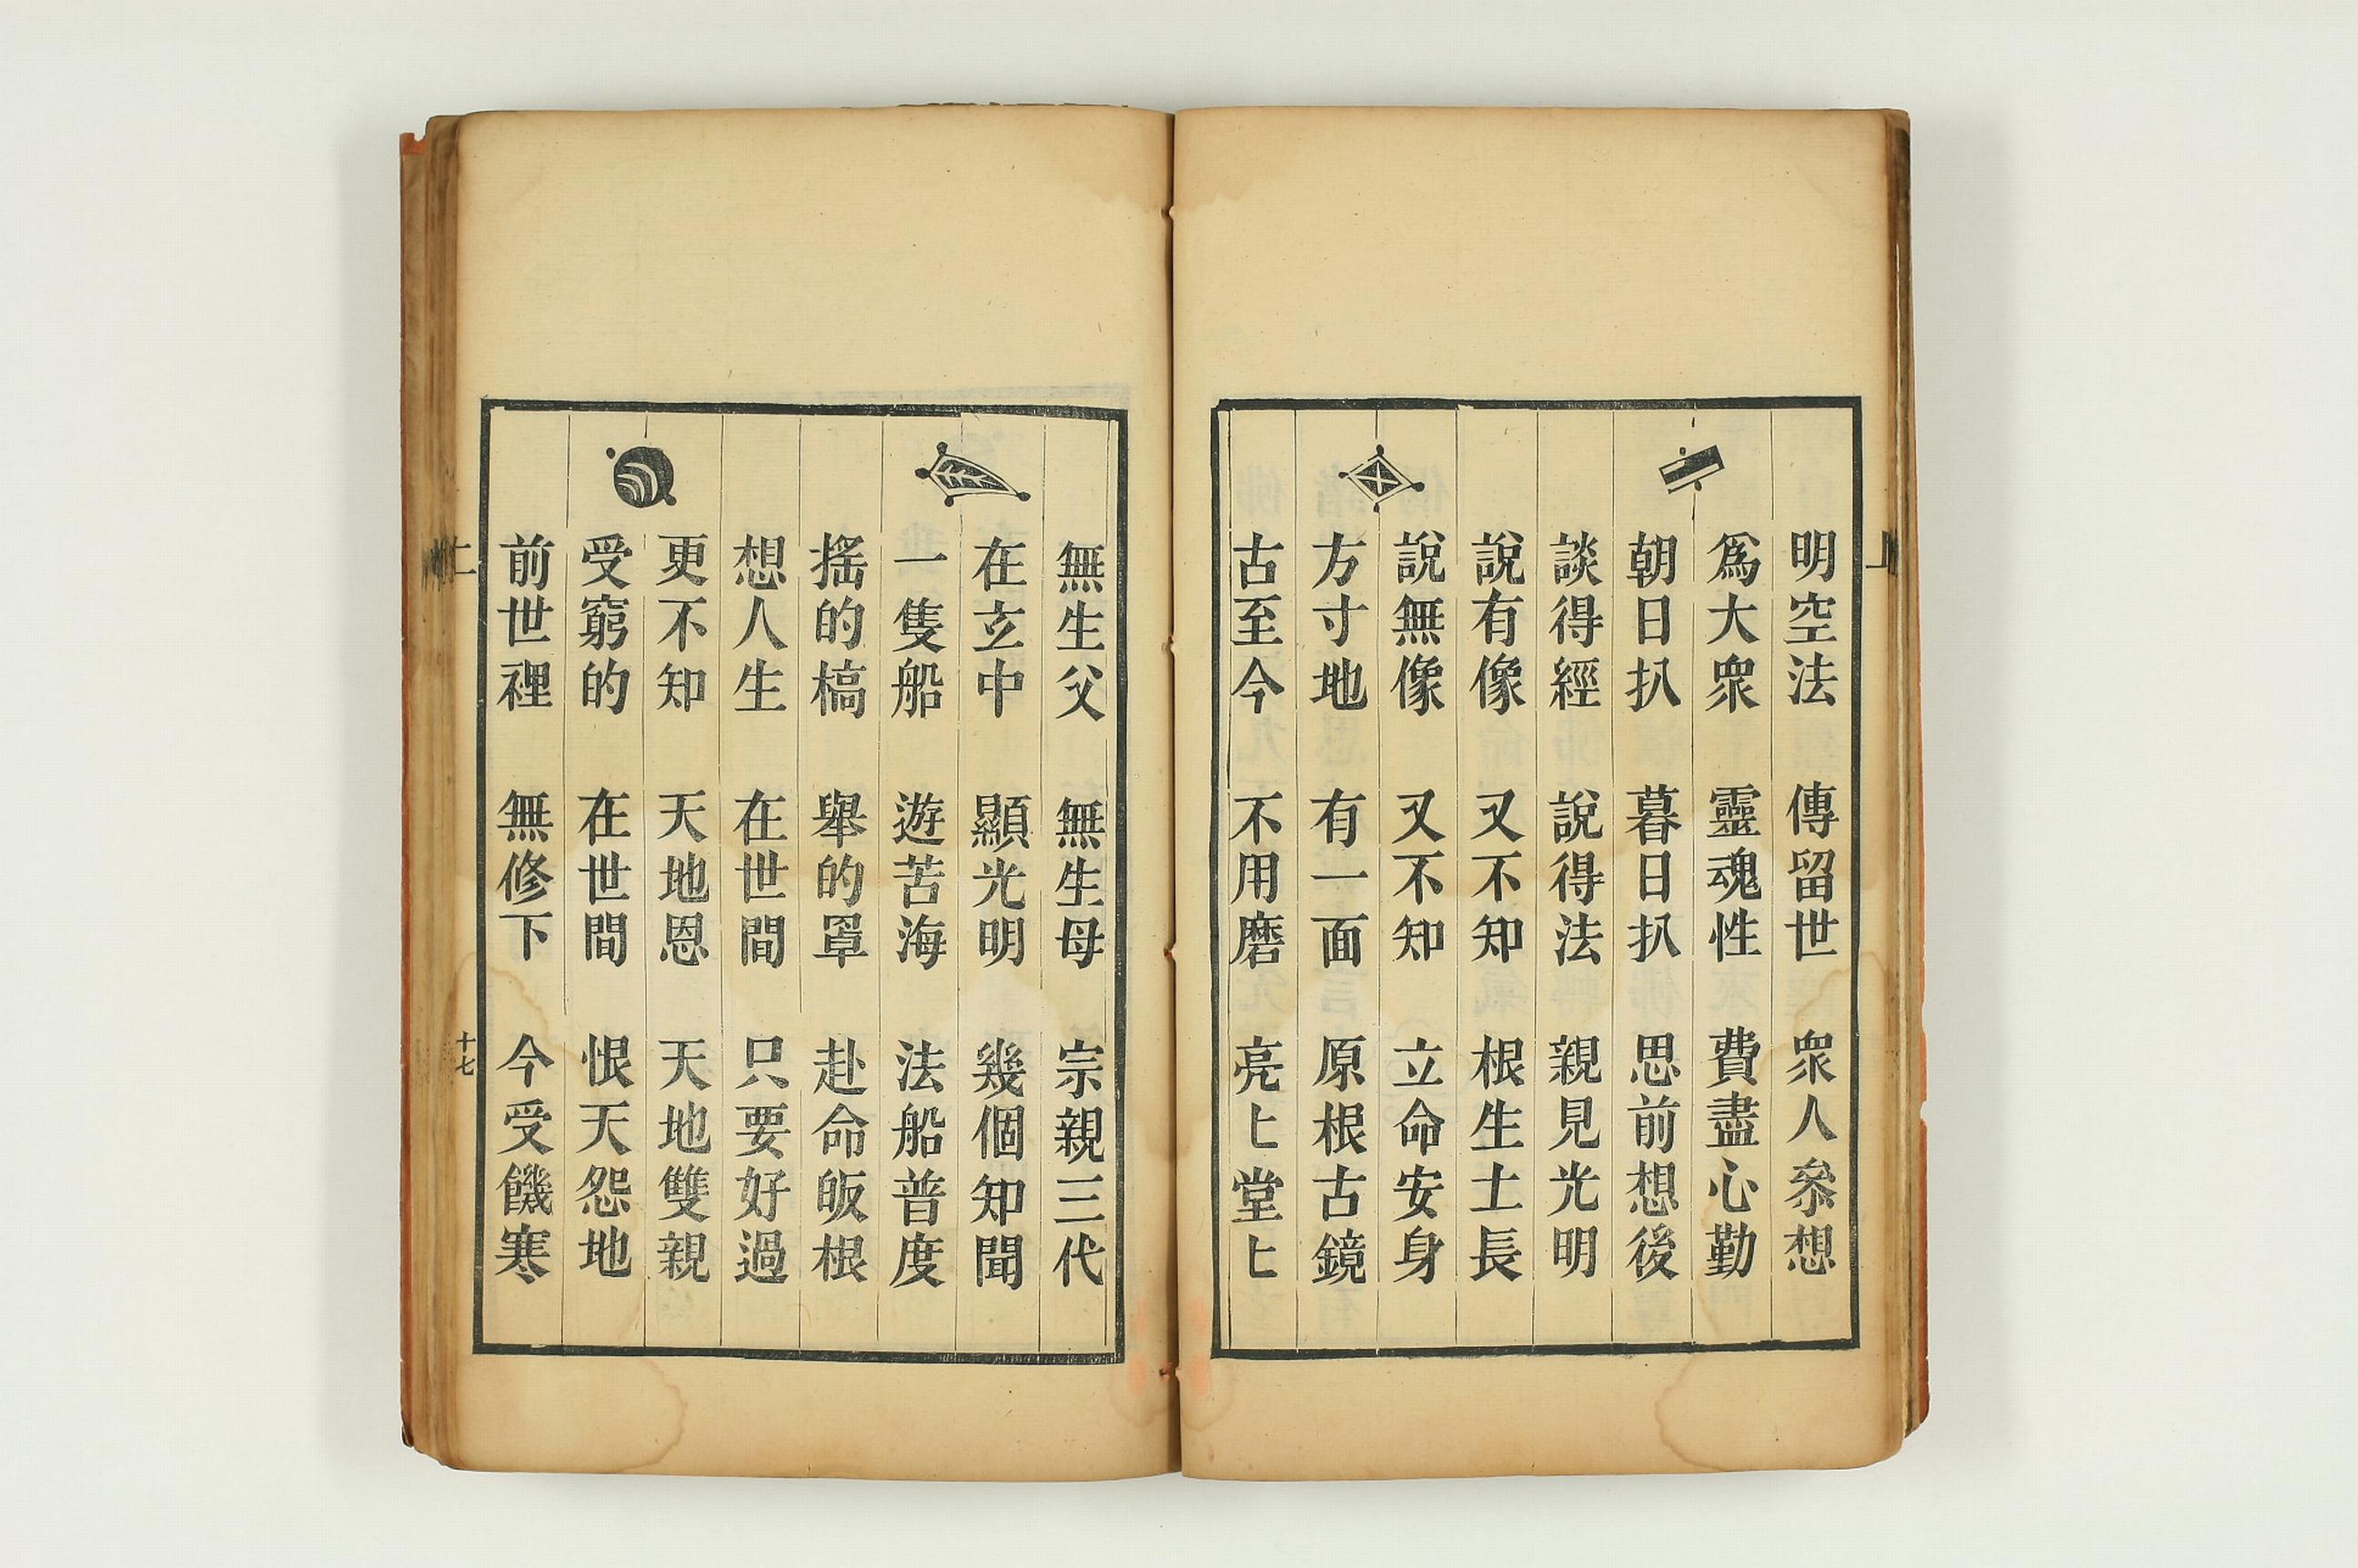 明空法 傳留世 衆人叅想
爲大衆 靈魂性 費盡心勤
朝日扒 暮日扒 思前想後
談得經 說得法 親見光明
說有像 又不知 根生土長
說無像 又不知 立命安身
方寸地 有一面 原根古鏡
古至今 不用磨 亮〻堂〻
無生父 無生母 宗親三代
在玄中 顯光明 幾個知聞
一隻船 遊苦海 法船普度
搖的槁 舉的罩 赴命皈根
想人生 在世間 只要好過
更不知 天地恩 天地雙親
受窮的 在世間 恨天怨地
前世裡 無修下 今受饑寒
十七